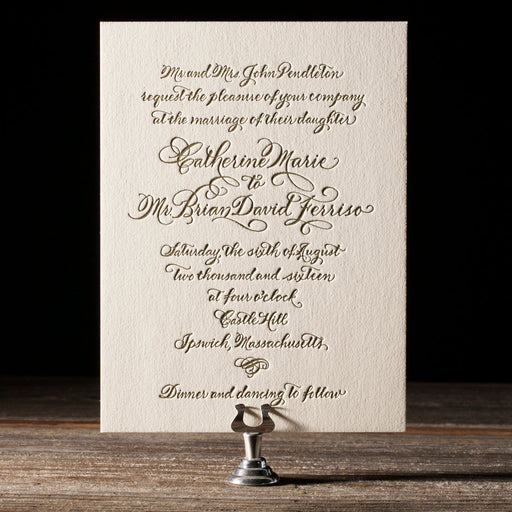 Mr. and Mrs. John Pendleton
request the pleasure of your company
at the marriage of their daughter
Catherine Marie
to
Mr. Brian David Ferriso
Saturday, the sixth of August
Two thousand and sixteen
at four o'clock
Castle Hill
Ipswich, Massachusetts
Dinner and dancing to follow